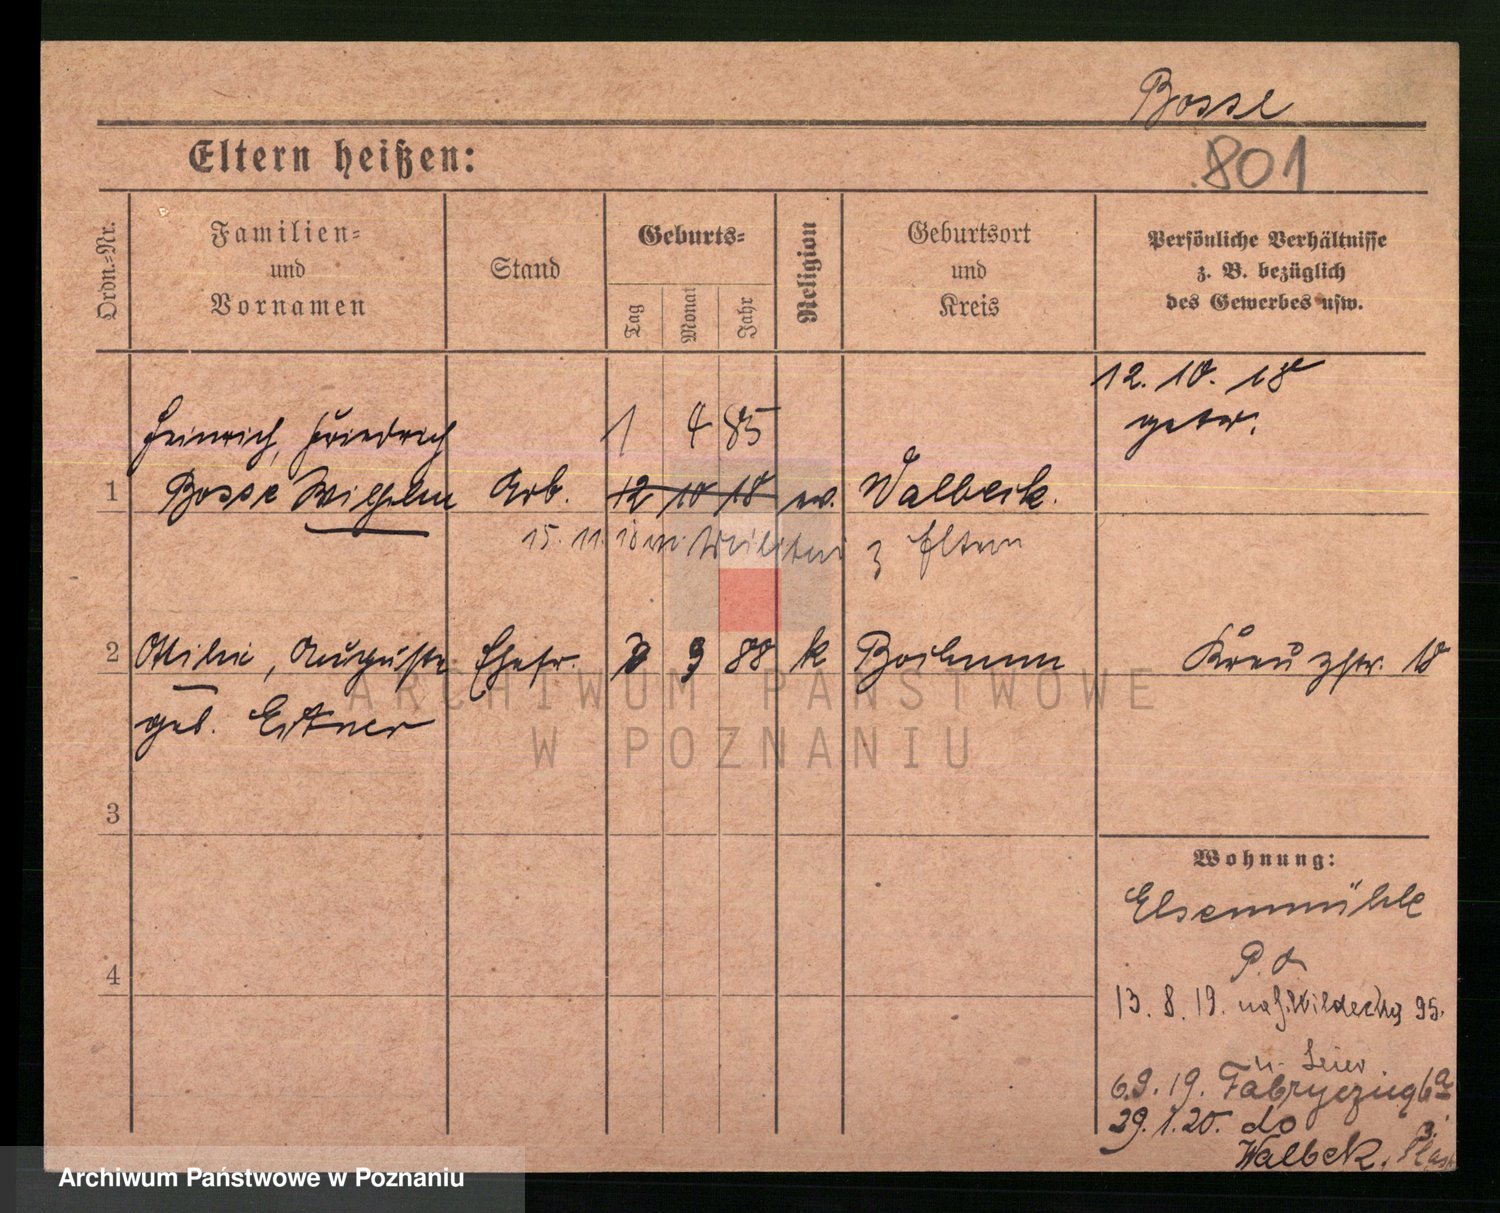 Bosse
801
Eltern heißen:
Ordn.-Nr.
Familien- und Vornamen
Stand
Geburts-
Tag
Monat
Jahr
Religion
Geburtsort und Kreis
Persönliche Verhältnisse z. B. bezüglich des Gewerbes usw.
12. 10. 18
getr.
Heinrich, Friedrich
1 4 85
1 Bosse Wilhelm Arb. 12 10 18 ev. Walbeck.
15. 11. 18 v. Militär z Eltern
2 Ottilie, Auguste Ehefr. 3 9 88 k Kreuzstr. 18
geb. Eitner
3
4
Wohnung:
Elsenmühle
13. 8. 19. 95.
6.9.19.
29.1.20. do
Walbek,
ARCHIWUM PAŃSTWOWE
W POZNANIU
Archiwum Państwowe w Poznaniu